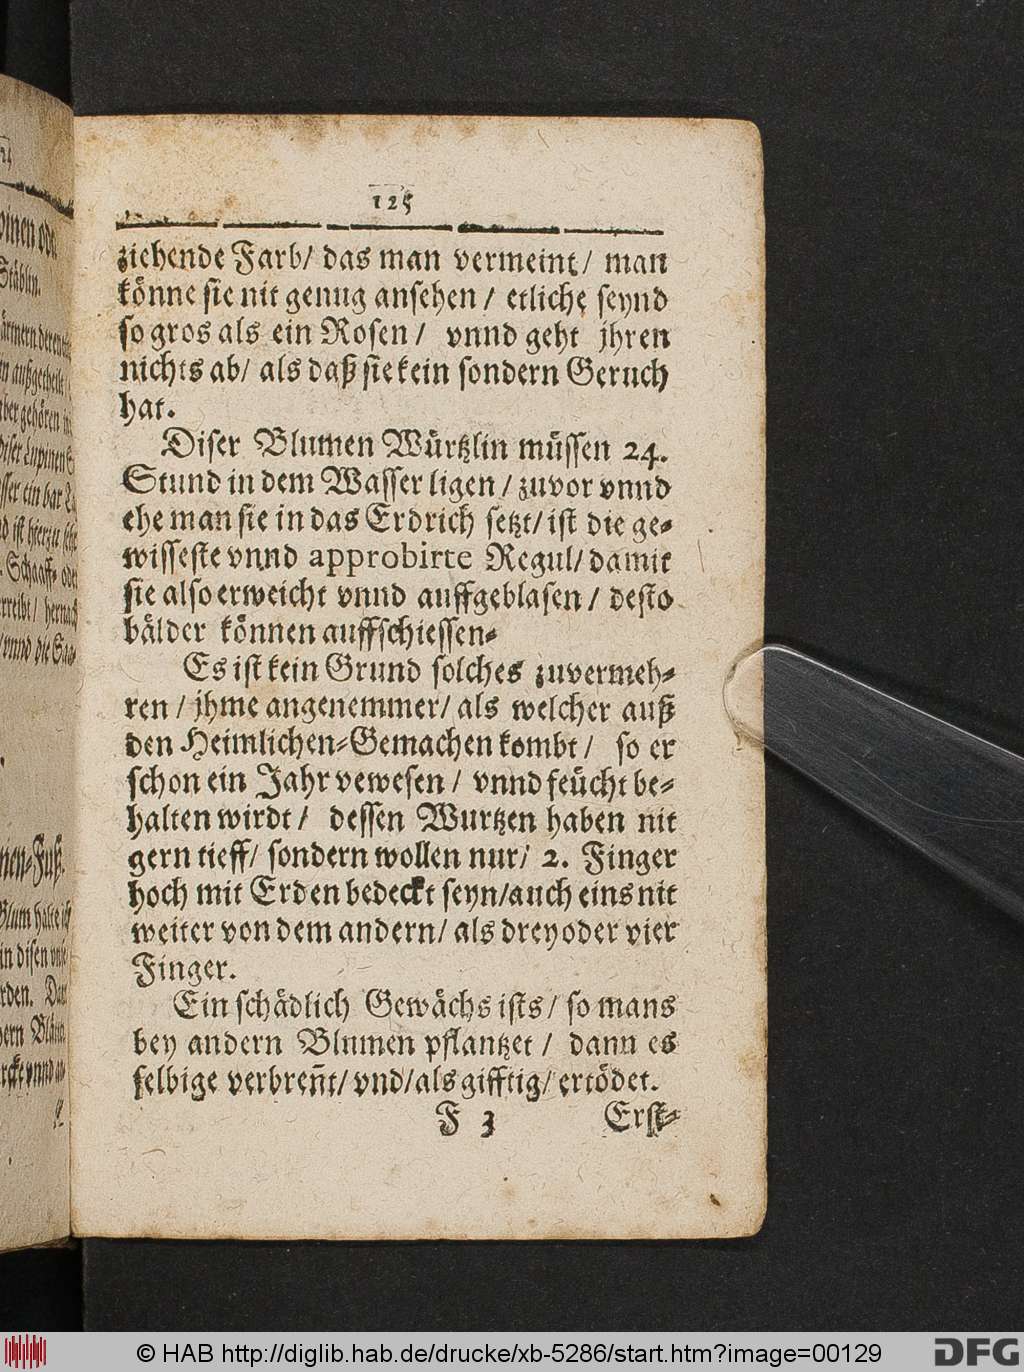 125
ziehende Farb/ das man vermeint/ man
könne sie nit genug ansehen / etliche seynd
so gros als ein Rosen / vnnd geht jhren
nichts ab/ als daß sie kein sondern Geruch
hat.
Diser Blumen Würtzlin müssen 24.
Stund in dem Wasser ligen / zuvor vnnd
ehe man sie in das Erdrich setzt/ ist die ge-
wisseste vnnd approbirte Regul/ damit
sie also erweicht vnnd auffgeblasen / desto
bälder können auffschiessen-
Es ist kein Grund solches zuvermeh-
ren / jhme angenemmer/ als welcher auß
den Heimlichen-Gemachen kombt / so er
schon ein Jahr vewesen / vnnd feücht be-
halten wirdt / dessen Wurtzen haben nit
gern tieff/ sondern wollen nur/ 2. Finger
hoch mit Erden bedeckt seyn/ auch eins nit
weiter von dem andern/ als drey oder vier
Finger.
Ein schädlich Gewächs ists / so mans
bey andern Blumen pflantzet / dann es
selbige verbreñt/ vnd/ als gifftig/ ertödet.
F 3 Erst-
© HAB http://diglib.hab.de/drucke/xb-5286/start.htm?image=00129
DFG